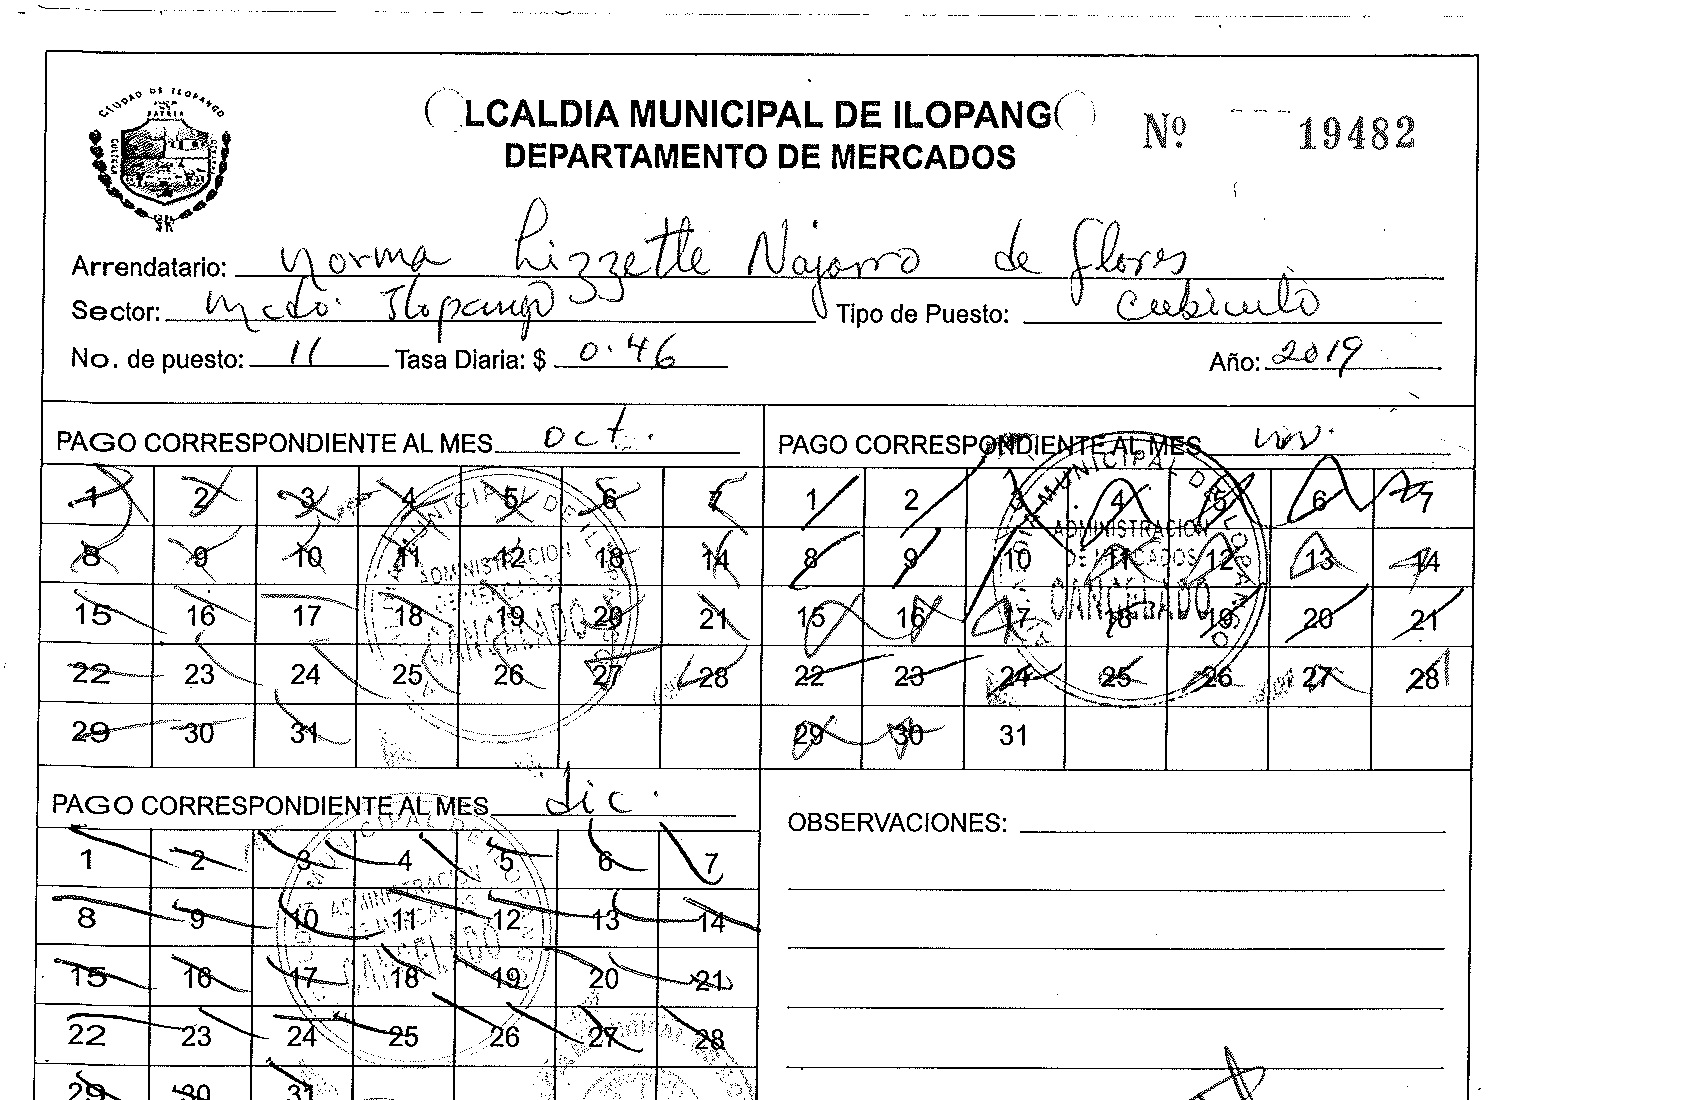 CIUDAD DE ILOPANGO
PATRIA
LCALDIA MUNICIPAL DE ILOPANG
DEPARTAMENTO DE MERCADOS
Nº 19482
Arrendatario: Norma Lizzette Najarro de Flores
Sector: Mcdo. Ilopango Tipo de Puesto: Cubiculo
No. de puesto: 11 Tasa Diaria: $ 0.46 Año: 2019
PAGO CORRESPONDIENTE AL MES oct.
1 2 3 4 5 6 7
8 9 10 11 12 13 14
15 16 17 18 19 20 21
22 23 24 25 26 27 28
29 30 31
ADMINISTRACION
CANCELADO
PAGO CORRESPONDIENTE AL MES nov.
1 2 3 4 5 6 7
8 9 10 11 12 13 14
15 16 17 18 19 20 21
22 23 24 25 26 27 28
29 30 31
MUNICIPAL DE ILOPANGO
ADMINISTRACION
DE MERCADOS
CANCELADO
PAGO CORRESPONDIENTE AL MES dic.
1 2 3 4 5 6 7
8 9 10 11 12 13 14
15 16 17 18 19 20 21
22 23 24 25 26 27 28
29 30 31
ADMINISTRACION
DE MERCADOS
CANCELADO
OBSERVACIONES: